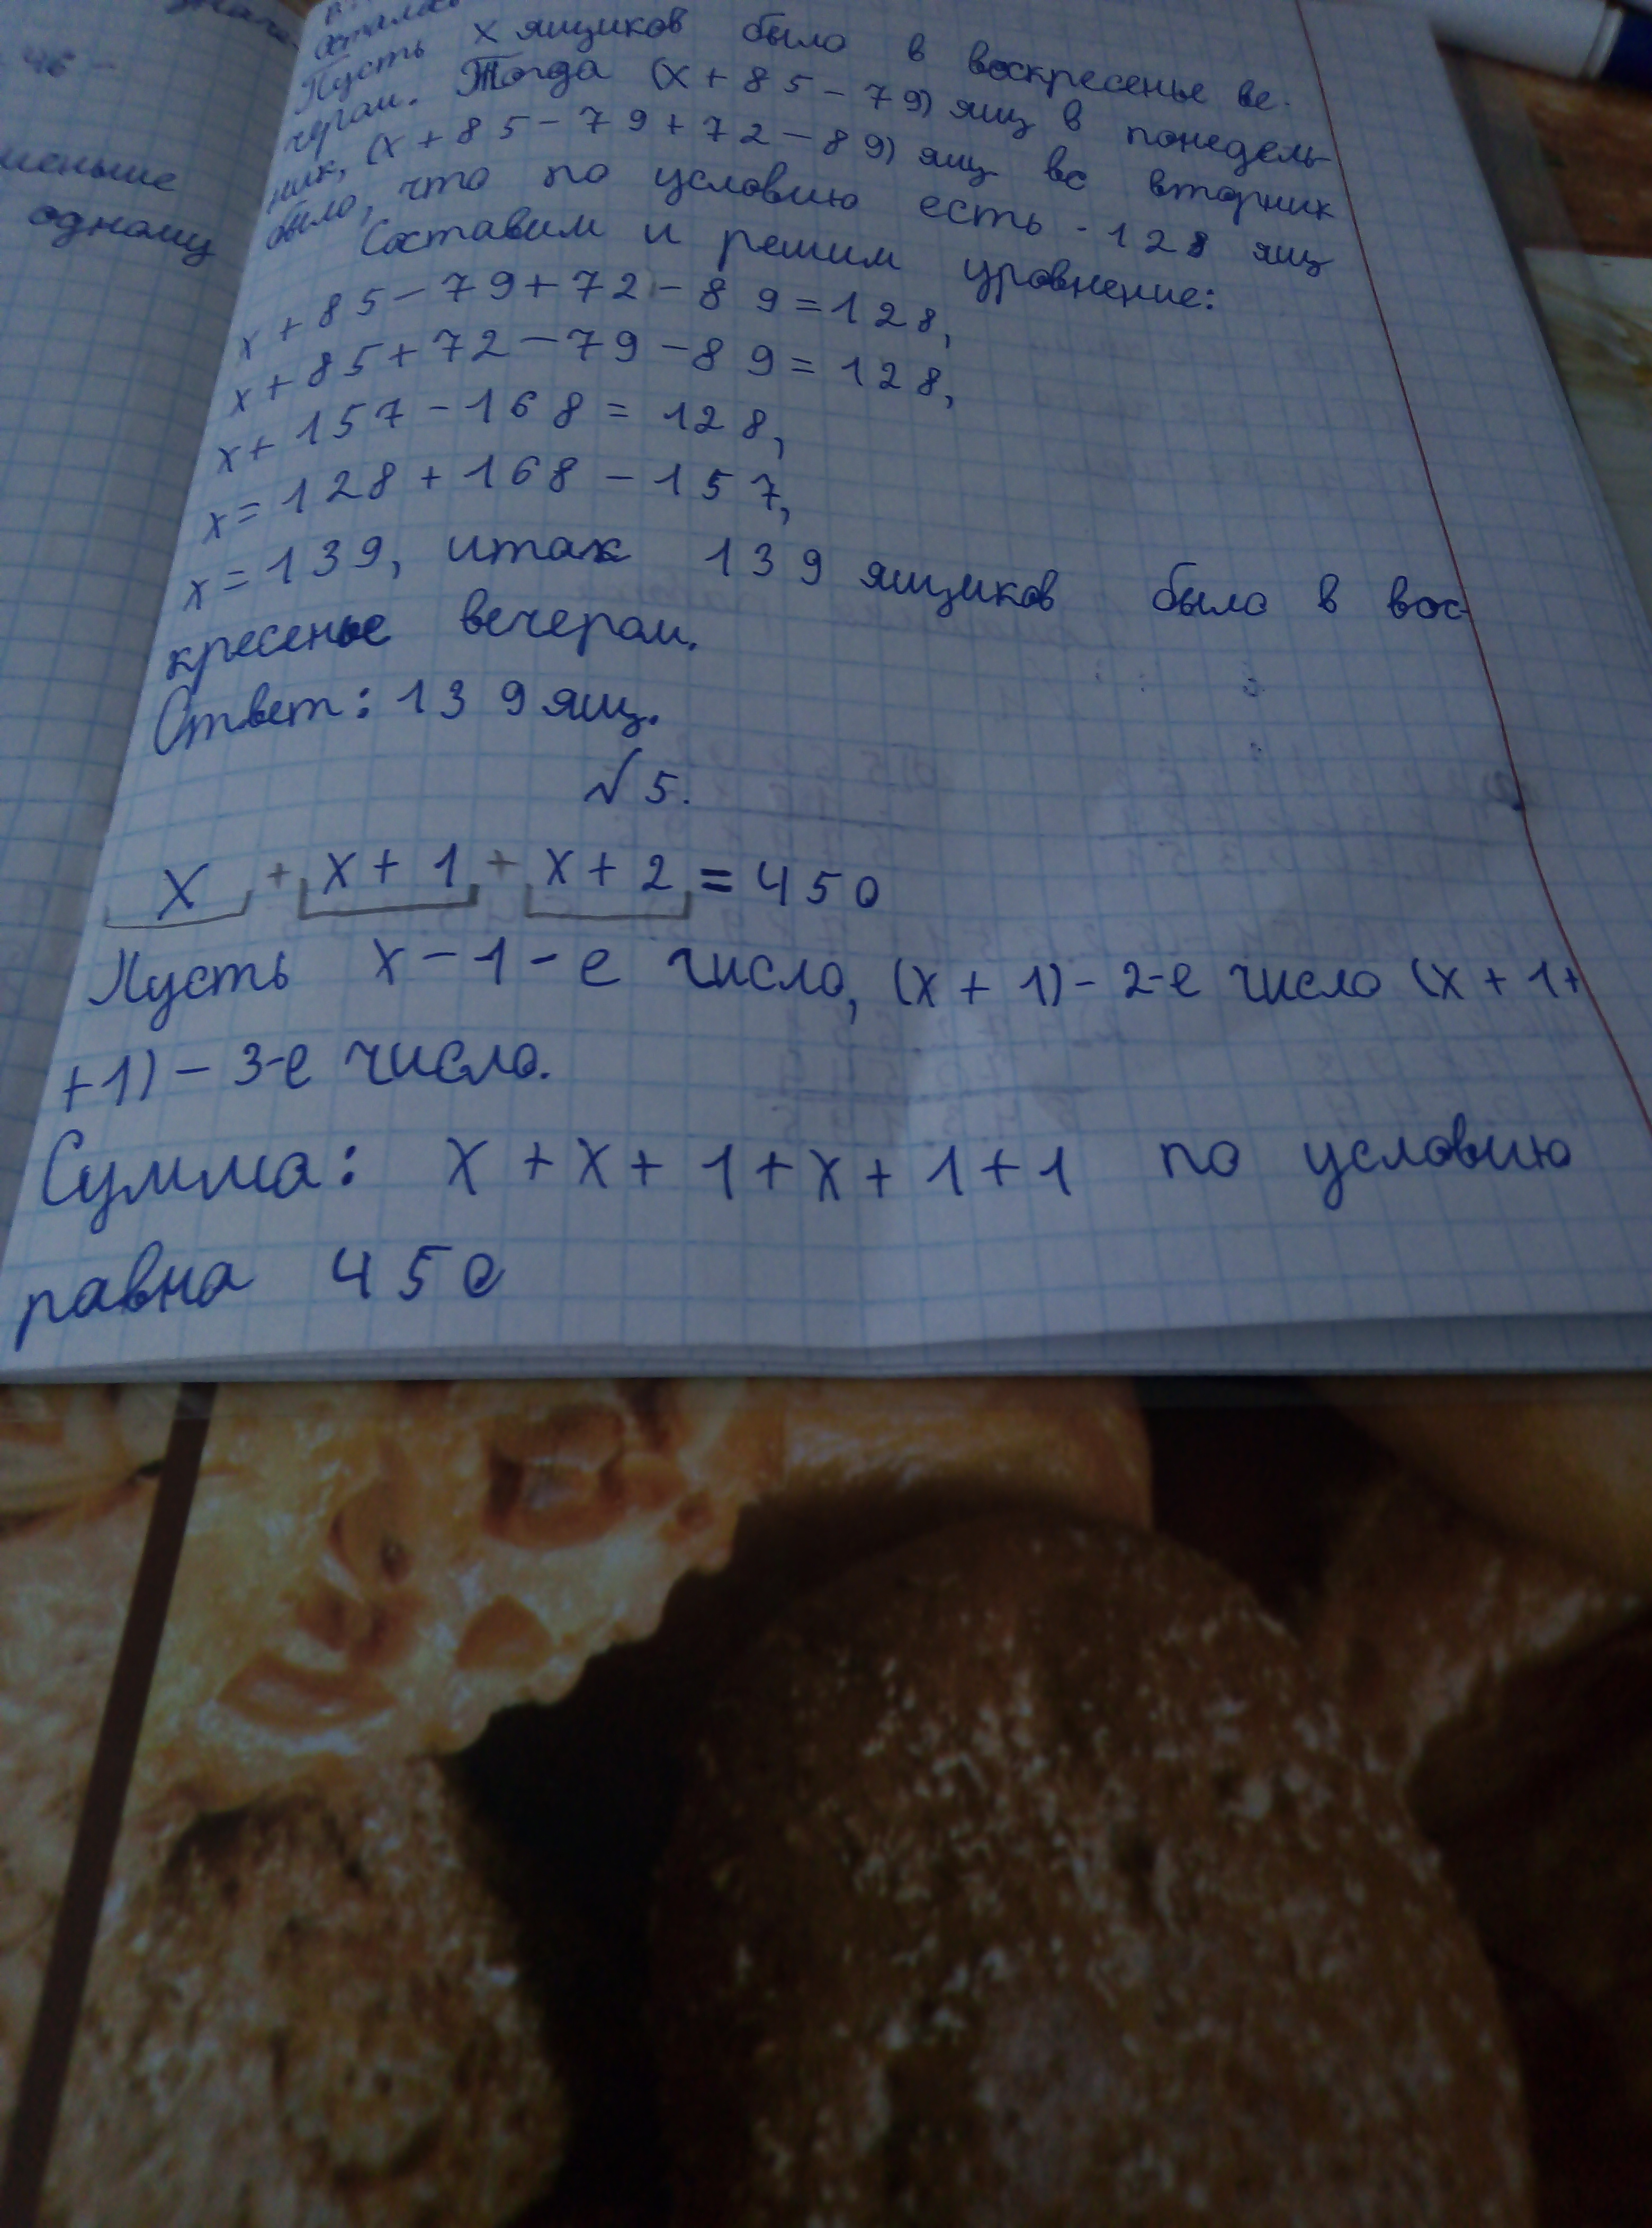 46 -
меньше
одному
Пусть х ящиков было в воскресенье ве-
чером. Тогда (х + 85 - 79) ящ в понедель-
ник, (х + 85 - 79 + 72 - 89) ящ во вторник
было, что по условию есть - 128 ящ
Составим и решим уровнение:
х + 85 - 79 + 72 - 89 = 128,
х + 85 + 72 - 79 - 89 = 128,
х + 157 - 168 = 128,
х = 128 + 168 - 157,
х = 139, итак 139 ящиков было в вос-
кресенье вечером.
Ответ: 139 ящ.
№5.
х + х + 1 + х + 2 = 450
Пусть х - 1-е число, (х + 1) - 2-е число (х + 1 +
+ 1) - 3-е число.
Сумма: х + х + 1 + х + 1 + 1 по условию
равна 450